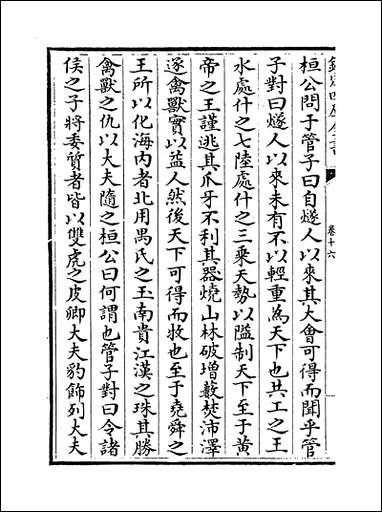 卷十六
桓公問于管子曰自燧人以來其大會可得而聞乎管
子對曰燧人以來未有不以輕重為天下也共工之王
水處什之七陸處什之三乘天勢以隘制天下至于黄
帝之王謹逃其爪牙不利其器燒山林破增藪焚沛澤
逐禽獸實以益人然後天下可得而牧也至于堯舜之
王所以化海内者北用禺氏之玉南貴江漢之珠其勝
禽獸之仇以大夫隨之桓公曰何謂也管子對曰令諸
侯之子將委質者皆以雙虎之皮卿大夫豹飾列大夫